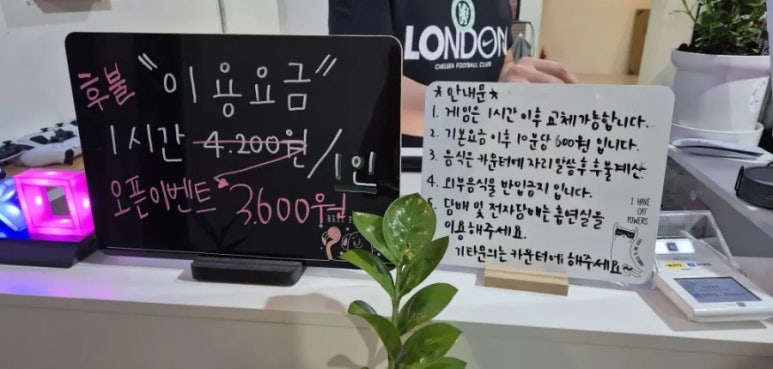 후불 "이용요금"
1시간 4.200원/1인
오픈이벤트 3.600원
LONDON
CHELSEA FOOTBALL CLUB
*안내문*
1. 게임은 1시간 이후 교체가능합니다.
2. 기본요금 이후 10분당 600원 입니다.
3. 음식은 카운터에 자리 말씀 후 후불계산
4. 외부음식물 반입금지 입니다.
5. 담배 및 전자담배는 흡연실을
이용해주세요.
기타문의는 카운터에 해주세요~
I HAVE
CAT
POWERS